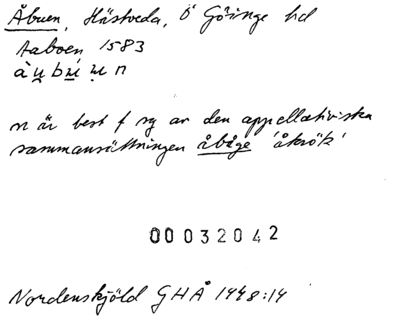 Åbuen, Hästveda, Ö Göinge hd
Aaboen 1583
à u̯ b ú̯ u̯ n
n är best f sg av den appellativiska
sammansättningen åbåge 'åkrök'
00032042
Nordenskjöld GHÅ 1948:14